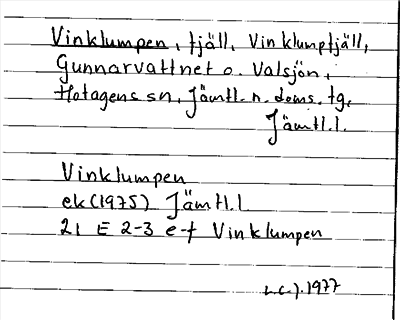 Vinklumpen, fjäll, Vinklumpfjäll,
Gunnarvattnet o. Valsjön,
Hotagens sn, Jämtl. n. doms. tg,
Jämtl.l.
Vinklumpen
ek(1975) Jämtl.l
21 E 2-3 e-f Vinklumpen
1977